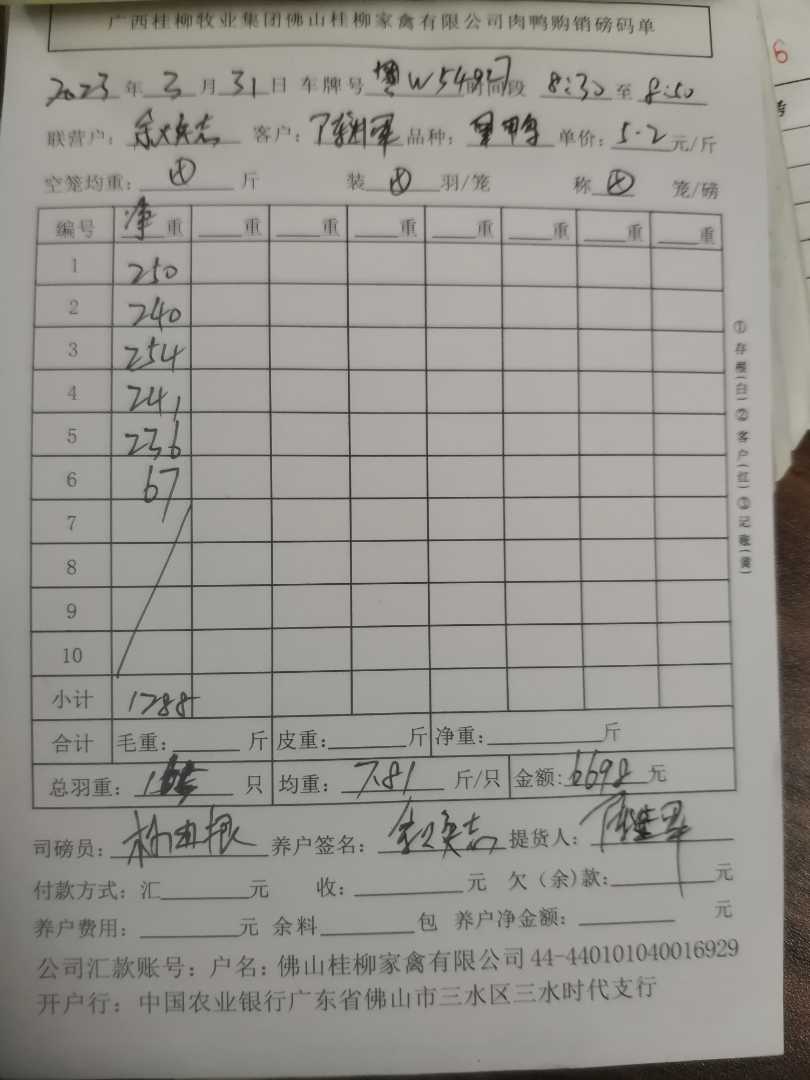 广西桂柳牧业集团佛山桂柳家禽有限公司肉鸭购销磅码单
2023年3月31日 车牌号 粤W54837 时间段 8:30至8:50
联营户: 客户: 品种: 单价: 5.2元/斤
空笼均重: 斤 装 羽/笼 称 笼/磅
编号 净重 重 重 重 重 重 重 重
1 250
2 240
3 254
4 241
5 236
6 67
7
8
9
10
小计 1288
合计 毛重: 斤 皮重: 斤 净重: 斤
总羽重: 只 均重: 7.81 斤/只 金额: 6698元
司磅员: 养户签名: 提货人:
付款方式: 汇 元 收: 元 欠(余)款: 元
养户费用: 元 余料 包 养户净金额: 元
公司汇款账号: 户名: 佛山桂柳家禽有限公司 44-440101040016929
开户行: 中国农业银行广东省佛山市三水区三水时代支行
①存根(白)②客户(红)③记账(黄)
6